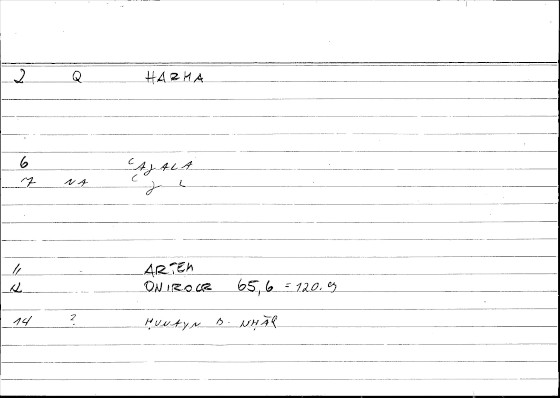 2 Q HARMA
6 ʿAJALA
7 NA ʿJL
11 ARTEM
12 ONIROCR 65,6 = 120.9
14 ? ḤUNAYN B.